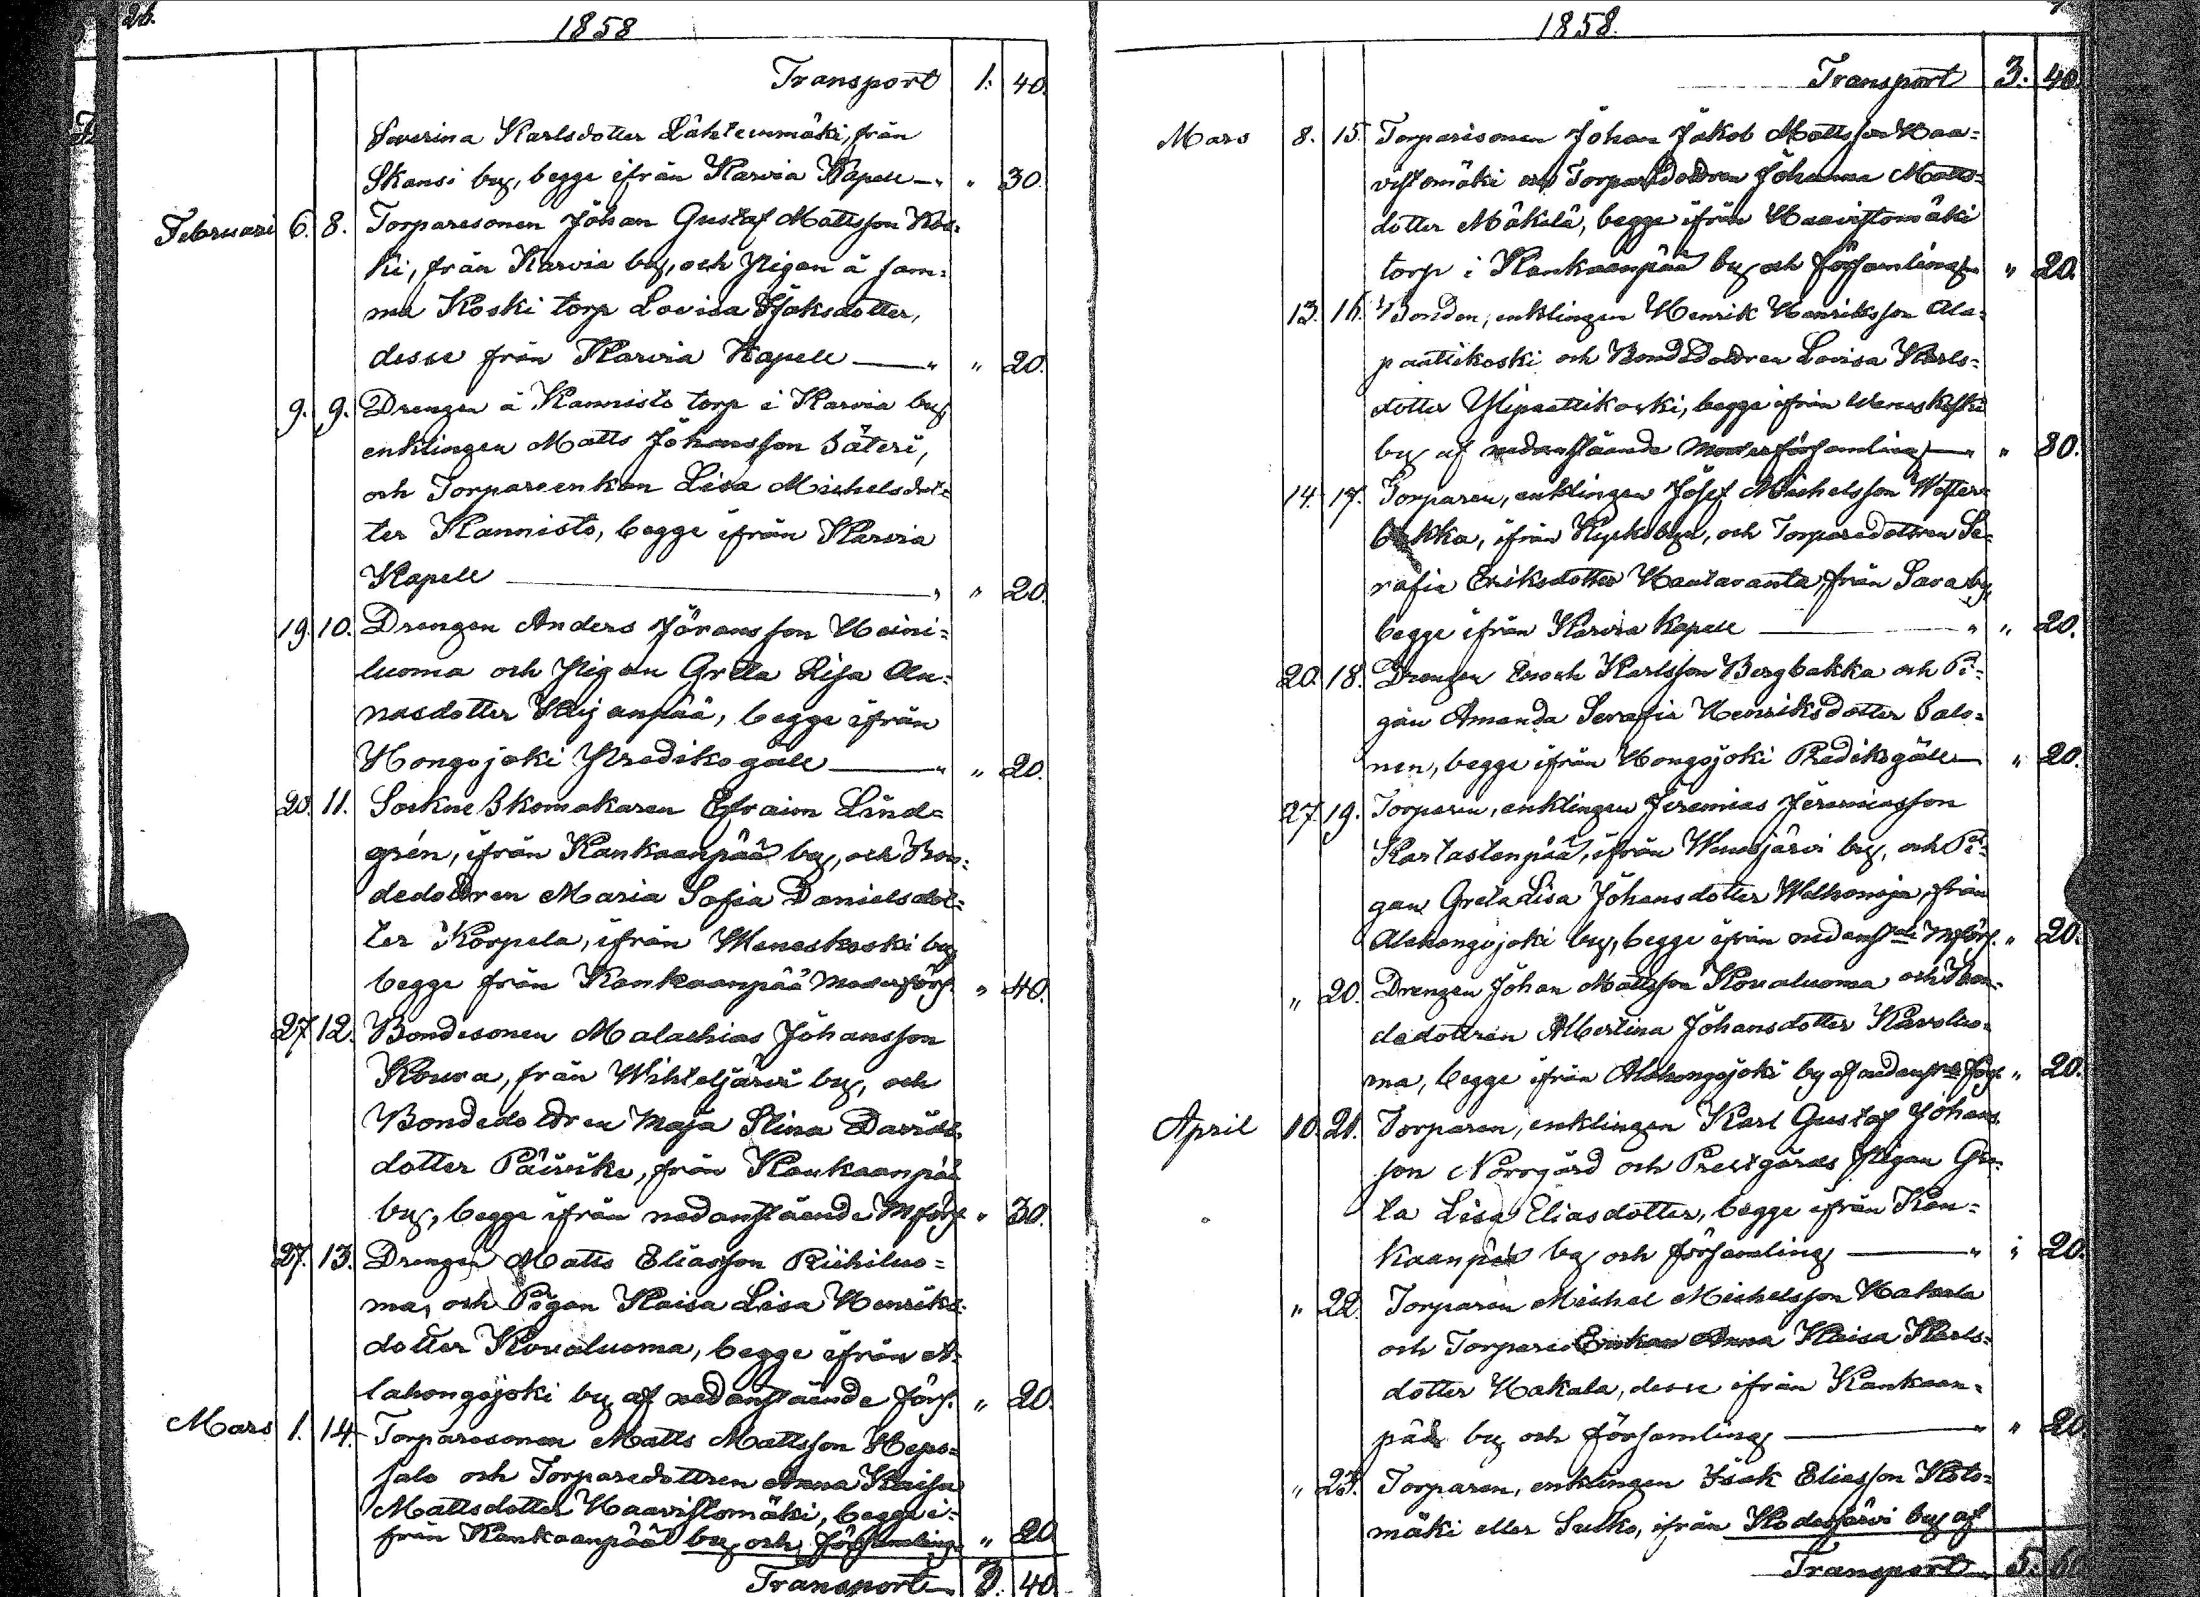 26.
1858
Transport 1. 40.
Severina Karlsdotter Lähteenmäki, från
Skansi by, begge ifrån Karvia Kapell — " 30
Februari 6. 8. Torparesonen Johan Gustaf Mattsson Kos-
ki, från Karvia by, och Pigan å sam-
ma Koski torp Lovisa Isaksdotter,
desse från Karvia Kapell — " " 20.
9. 9. Drengen å Kannisto torp i Karvia by
enklingen Matts Johansson Säteri,
och Torpareenkan Lisa Michelsdot-
ter Kannisto, begge ifrån Karvia
Kapell — " " 20.
19. 10. Drengen Anders Jöransson Heini-
luoma och Pigan Greta Lisa An-
nasdotter Keijanpää, begge ifrån
Hongojoki Predikogäll — " " 20.
20. 11. Sockne Skomakaren Efraim Lind-
grén, ifrån Kankaanpää by, och Bon-
dedottren Maria Sofia Danielsdot-
ter Korpela, ifrån Weneskoski by
begge från Kankaanpää Moderförs. " 40.
27 12. Bondesonen Malachias Johansson
Kouva, från Wihteljärvi by, och
Bondedottren Maja Stina Davids-
dotter Päivike, från Kankaanpää
by, begge ifrån nedanstående Mförs. " 30.
27. 13. Drengen Matts Eliasson Riihiluo-
ma, och Pigan Kaisa Lisa Henriks-
dotter Koualuoma, begge ifrån A-
lahongojoki by af nedanstående förs. " 20.
Mars 1. 14. Torparesonen Matts Mattsson Heps-
salo och Torparedottren Anna Kaisa
Mattsdotter Haavistomäki, begge i-
från Kankaanpää by och Församling " 20
Transport 3. 40
1858.
Transport 3. 40.
Mars 8. 15. Torparesonen Johan Jakob Mattsson Haa-
vistomäki och Torparedottren Johanna Matts-
dotter Mäkelä, begge ifrån Haavistomäki
torp i Kankaanpää by och församling " 20.
13. 16. Bonden, enklingen Henrik Henriksson Ala-
paattikoski och Bondedottren Lovisa Karls-
dotter Ylipaattikoski, begge ifrån Weneskoski
by af nedanstående Moderförsamling — " 80.
14. 17. Torparen, enklingen Josef Michelsson Wester-
backa, ifrån Kyrkobyn, och Torparedottren Se-
rafia Eriksdotter Hautaranta, från Sara by,
begge ifrån Karvia Kapell — " " 20.
20. 18. Drengen Enoch Karlsson Bergbakka och Pi-
gan Amanda Serafia Henriksdotter Salo-
nen, begge ifrån Hongojoki Predikogäll — " 20.
27. 19. Torparen, enklingen Jeremias Jeremiasson
Kartastenpää, ifrån Wenesjärvi by, och Pi-
gan Greta Lisa Johansdotter Welhonoja, från
Alahongojoki by, begge ifrån nedanst.de Mförs. " 20.
" 20. Drengen Johan Mattsson Koualuoma och Bon-
dedottren Albertina Johansdotter Karvoluo-
ma, begge ifrån Alahongojoki by af nedanst.de förs. " 20.
April 10. 21. Torparen, enklingen Karl Gustaf Johans-
son Norrgård och Prestgårds Pigan Gre-
ta Lisa Eliasdotter, begge ifrån Kan-
kaanpää by och församling — " " 20.
" 22. Torparen Michel Michelsson Hakala
och Torpare Enkan Anna Kaisa Karls-
dotter Hakala, desse ifrån Kankaan-
pää by och församling — " 20
" 23. Torparen, enklingen Isak Eliasson Koto-
mäki eller Sulko, ifrån Kodesjärvi by af
Transport 5. 60